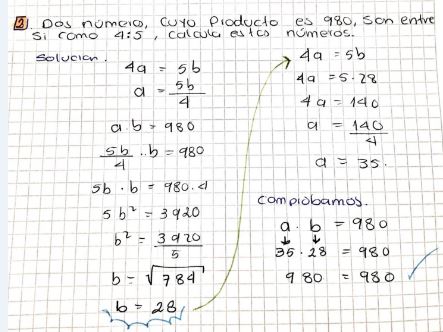 2. Dos número, cuyo Producto es 980, son entre
si como 4:5, calcula estos números.
Solución.
4a = 5b
a = 5b/4
a.b = 980
5b/4 .b = 980
5b . b = 980.4
5b² = 3920
b² = 3920/5
b = √784
b = 28
4a = 5b
4a = 5.28
4a = 140
a = 140/4
a = 35.
Comprobamos.
a . b = 980
↓ ↓
35 . 28 = 980
980 = 980 ✓